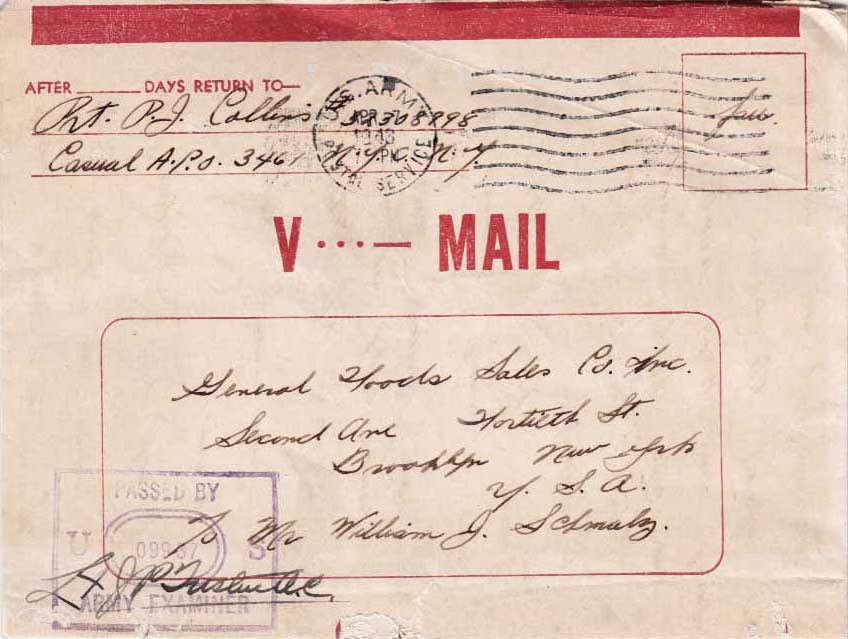 AFTER ______ DAYS RETURN TO—
Pvt. P. J. Collins 32308898
Casual A.P.O. 3467 N.Y.C. N.Y.
U.S. ARMY
APR 7
1943
PM
POSTAL SERVICE
Free
V ···— MAIL
General Foods Sales Co. Inc.
Second Ave Fortieth St.
Brooklyn New York
U. S. A.
To Mr William J. Schmalz.
PASSED BY
U 09937 S
ARMY EXAMINER
Lt J P